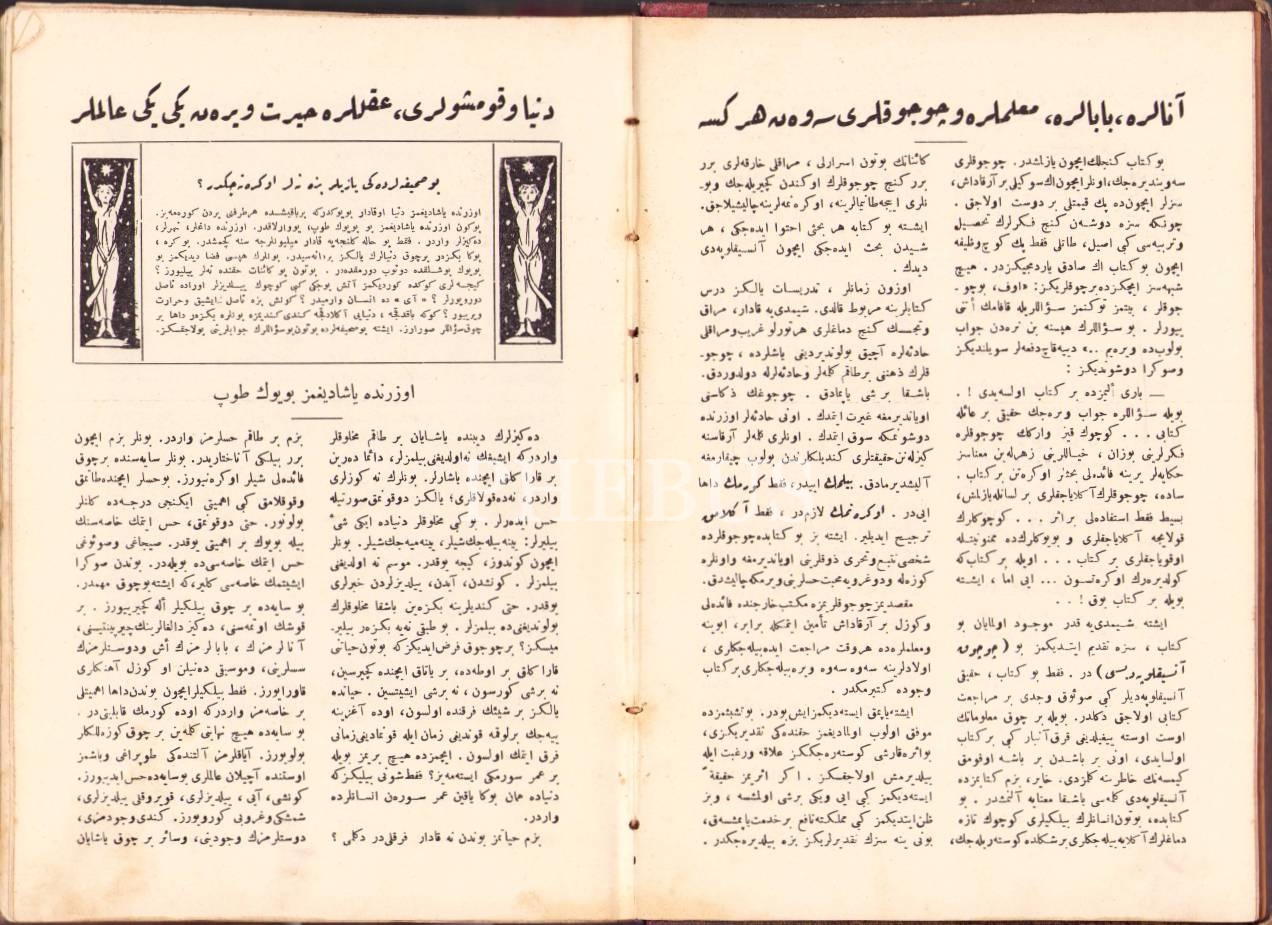 آنالره، بابالره، معلملره و چوجوقلری سه‌وه‌ن هر كسه
بو كتاب كنجلك ایچون یازلمشدر. چوجوقلری
سه‌ویندیره‌جك، اونلر ایچون اك سوكیلی بر آرقاداش،
سزلر ایچون‌ده پك قیمتلی بر دوست اولاجق.
چونكه سزه دوشه‌ن كنج فكرلرك تحصیل
وتربیه‌سی كبی اصیل، طاتلی فقط پك كوچ وظیفه
ایچون بو كتاب اك صادق یاردمجیكزدر. هیچ
شبهه‌سز ایچكزده بر چوقلریكز: «اوف، بو چو-
جوقلر، بیتمز توكنمز سؤاللریله قافامك أتنی
ییورلر. بو سؤاللرك هپسنه بن نره‌دن جواب
بولوب‌ده ویره‌یم ..» دییه قاچ دفعه‌لر سویلندیكز
وصوكرا دوشوندیكز :
— باری ألیمزده بر كتاب اولسه‌یدی ! .
بویله سؤاللره جواب ویره‌جك حقیقی بر عائله
كتابی . . . كوچوك قیز واركك چوجوقلره
فكرلرینی بوزان، خیاللرینی زهرله‌ین معناسز
حكایه‌لر یرینه فائده‌لی بحثلر اوكره‌تن بر كتاب .
ساده، چوجوقلرك آكلایاجقلری بر لسانله یازلمش،
بسیط فقط استفاده‌لی بر اثر . . . كوچوكلرك
قولایجه آكلایاجقلری و بویوكلرك‌ده ممنونیتله
اوقویاجقلری بر كتاب . . . اویله بر كتاب‌كه
كولدیره‌رك اوكره‌تسون ... ایی اما ، ایشته
بویله بر كتاب یوق ! . .
ایشته شیمدی‌یه قدر موجود اولمایان بو
كتاب ، سزه تقدیم ایتدیكمز بو ( چوجوق
آنسیقلوپه‌دیسی ) در . فقط بو كتاب ، حقیقی
آنسیقلوپه‌دیلر كبی صوئوق وجدی بر مراجعت
كتابی اولاجق دكلدر. بویله بر چوق معلوماتك
اوست اوسته ییغیلدینی قرق آنبار كبی بر كتاب
اولسایدی، اونی بر باشدن بر باشه اوقومق
كیمسه‌نك خاطرینه كلمزدی. خایر، بزم كتابمزده
آنسیقلوپه‌دی كله‌سی باشقا معنایه آلنمشدر . بو
كتابده، بوتون انسانلرك بیلكیلری كوچوك تازه
دماغلرك آكلایه‌بیله‌جكلری بر شكلده كوستریله‌جك،
كائناتك بوتون اسرارلی ، مراقلی خارقه‌لری برر
برر كنج چوجوقلرك اوكندن كچیریله‌جك وبو-
نلری اییجه طانیمالرینه، اوكره‌نمه‌لرینه چالیشیلاجق.
ایشته بو كتابه هر بحثی احتوا ایده‌جكی ، هر
شیدن بحث ایده‌جكی ایچون آنسیقلوپه‌دی
دیدك .
اوزون زمانلر ، تدریسات یالكز درس
كتابلرینه مربوط قالدی. شیمدی‌یه قادار، مراق
وتجسسك كنج دماغلری هر تورلو غریب ومراقلی
حادثه‌لره آچیق بولوندیردینی یاشلرده ، چوجو-
قلرك ذهنی بر طاقم كله‌لر وحادثه‌لرله دولدوردق.
باشقا بر شی یاپمادق . چوجوغك ذكاسنی
اویاندیرمغه غیرت ایتمدك . اونی حادثه‌لر اوزرنده
دوشونمكه سوق ایتمدك . اونلری كله‌لر آرقاسنه
كیزله‌نن حقیقتلری كندیلكلرندن بولوب چیقارمغه
آلیشدیرمادق. بیلمك اییدر، فقط كورمك داها
ایی‌در . اوكره‌نمك لازم‌در ، فقط آكلامق
ترجیح ایدیلیر. ایشته بز بو كتابده چوجوقلرده
شخصی تتبع وتحری ذوقلرینی اویاندیرمغه واونلره
كوزه‌له ودوغرویه محبت حسلرینی ویرمكه چالیشدق.
مقصدیمز چوجوقلریمزه مكتب خارجنده فائده‌لی
وكوزل بر آرقاداش تأمین ایتمكله برابر، ابوینه
ومعلملره‌ده هر وقت مراجعت ایده‌بیله‌جكلری ،
اولادلرینه سه‌وه سه‌وه ویره‌بیله‌جكلری بر كتاب
وجوده كتیرمكدر .
ایشته یاپمق ایسته‌دیكمز ایش بودر. بو تشبثمزده
موفق اولوب اولمادیغمز حقنده‌كی تقدیریكزی،
بو اثره قارشی كوستره‌جككز علاقه ورغبت ایله
بیلدیرمش اولاجقسكز . اكر اثریمز حقیقةً
ایسته‌دیكمز كبی ایی ویكی بر شی اولمشسه ، وبز
ظن ایتدیكمز كبی مملكته نافع بر خدمت یاپمشسه‌ق،
بونی ینه سزك تقدیرلریكز بزه بیلدیره‌جكدر .
دنیا وقومشولری، عقللره حیرت ویره‌ن یكی یكی عالملر
بو صحیفه‌لرده‌كی یازیلر بزه نه‌لر اوكره‌ته‌جكدر؟
اوزرنده یاشادیغمز دنیا اوقادار بویوكدركه بر باقیشده هر طرفی بردن كوره‌مه‌یز.
بوكون اوزرنده یاشادیغمز بو بویوك طوپ، یووارلاقدر. اوزرنده داغلر، نهرلر،
ده‌كیزلر واردر . فقط بو حاله كلنجه‌یه قادار میلیونلرجه سنه كچمشدر. بو كره ،
بوكا بكزه‌ر بر چوق دنیالرك یالكز بر دانه‌سیدر. بونلرك هپسی فضا دیدیكمز بو
بویوك بوشلقده دونوب دورمقده‌در . بوتون بو كائنات حقنده نه‌لر بیلیورز ؟
كیجه‌لری كوكده كوردیكمز آتش بوجكی كبی كوچوك ییلدیزلر اوراده ناصل
دورویورلر ؟ « آی » ده انسان وارمیدر ؟ كونش بزه ناصل ایشیق وحرارت
ویرییور ؟ كوكه باقدقجه ، دنیایی آكلادقجه كندی كندیمزه بونلره بكزه‌ر داها بر
چوق سؤاللر صورارز. ایشته بو صحیفه‌لرده بوتون بو سؤاللرك جوابلرینی بولاجقسكز.
اوزرنده یاشادیغمز بویوك طوپ
ده‌كیزلرك دیبنده یاشایان بر طاقم مخلوقلر
واردركه ایشیغك نه اولدیغنی بیلمزلر، دائما ده‌رین
بر قارا كلق ایچنده یاشارلر. بونلرك نه كوزلری
واردر، نه‌ده قولاقلری؛ یالكز دوقونمق صورتیله
حس ایده‌رلر . بو كبی مخلوقلر دنیاده ایكی شیٔ
بیلیرلر: یینه‌بیله‌جك شیلر، یینه‌میه‌جك شیلر. بونلر
ایچون كوندوز، كیجه یوقدر. موسم نه اولدیغنی
بیلمزلر . كونشدن، آیدن، ییلدیزلردن خبرلری
یوقدر. حتی كندیلرینه بكزه‌ین باشقا مخلوقلرك
بولوندیغنی‌ده بیلمزلر . بو طبقی نه‌یه بكزه‌ر بیلیر-
میسكز؟ بر چوجوق فرض ایدیكزكه بوتون حیاتنی
قارا كلق بر اوطه‌ده، بر یاتاق ایچنده كچیرسین،
نه برشی كورسون ، نه برشی ایشیتسین . حیانده
یالكز بر شیئك فرقنده اولسون، اوده آغزینه
ییه‌جك بر لوقمه قوندینی زمان ایله قونمادینی زمانی
فرق ایتمك اولسون . ایچمزده هیچ بریمز بویله
بر عمر سورمكی ایسته‌مه‌یز؟ فقط شونی بیلیكزكه
دنیاده همان بوكا یاقین عمر سوره‌ن انسانلرده
واردر.
بزم حیاتمز بوندن نه قادار فرقلی‌در دكلمی ؟
بزم بر طاقم حسلرمز واردر. بونلر بزم ایچون
برر بیلكی آناختاریدر. بونلر سایه‌سنده بر چوق
فائده‌لی شیلر اوكره‌نییورز. بو حسلر ایچنده طاتمق
وقوقلامق كبی اهمیتی ایكنجی درجه‌ده كلنلر
بولونور. حتی دوقونمق، حس ایتمك خاصه‌سنك
بیله بویوك بر اهمیتی یوقدر. صیجاغی وصوئوغی
حس ایتمك خاصه‌سی‌ده بویله‌در. بوندن صوكرا
ایشیتمك خاصه‌سی كلیر، كه ایشته بو چوق مهمدر.
بو سایه‌ده بر چوق بیلكیلر أله كچیرییورز . بر
قوشك اوتمه‌سنی، ده‌كیز دالغالرینك چیرپینتیسنی،
آنالرمزك ، بابالرمزك أش ودوستلرمزك
سسلرینی، وموسیقی ده‌نیلن او كوزل آهنكلری
قاورایورز. فقط بیلكیلر ایچون بوندن داها اهمیتلی
بر خاصه‌مز واردركه اوده كورمك قابلیتی‌در .
بو سایه‌ده هیچ نهایتی كلمه‌ین بر چوق كوزه‌للكلر
بولویورز. آیاقلرمز آلتنده‌كی طوپراغی وباشمز
اوستنده آچیلان عالملری بو سایه‌ده حس ایدییورز.
كونشی، آیی ، ییلدیزلری، قویروقلی ییلدیزلری،
شمشكی وغروبی كورویورز. كندی وجودمزی،
دوستلرمزك وجودینی، وسائر بر چوق یاشایان